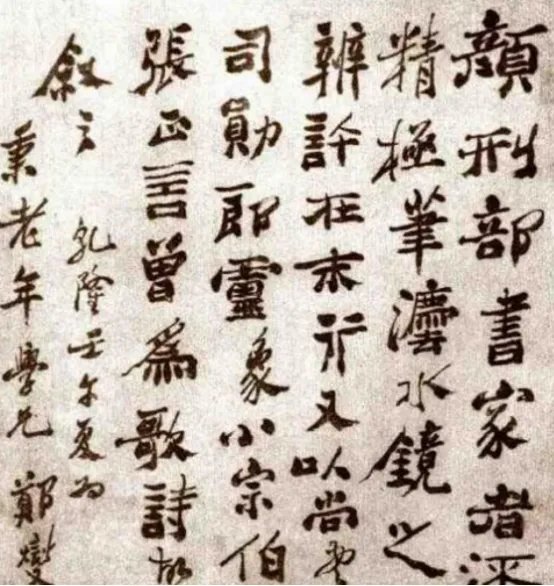 顏刑部書家者流
精極筆灋水鏡之
辨許在末行又以尚書
司勛郎靈象小宗伯
張正言曾爲歌詩故
敘之 乾隆壬午夏為
秉老年學兄 鄭燮